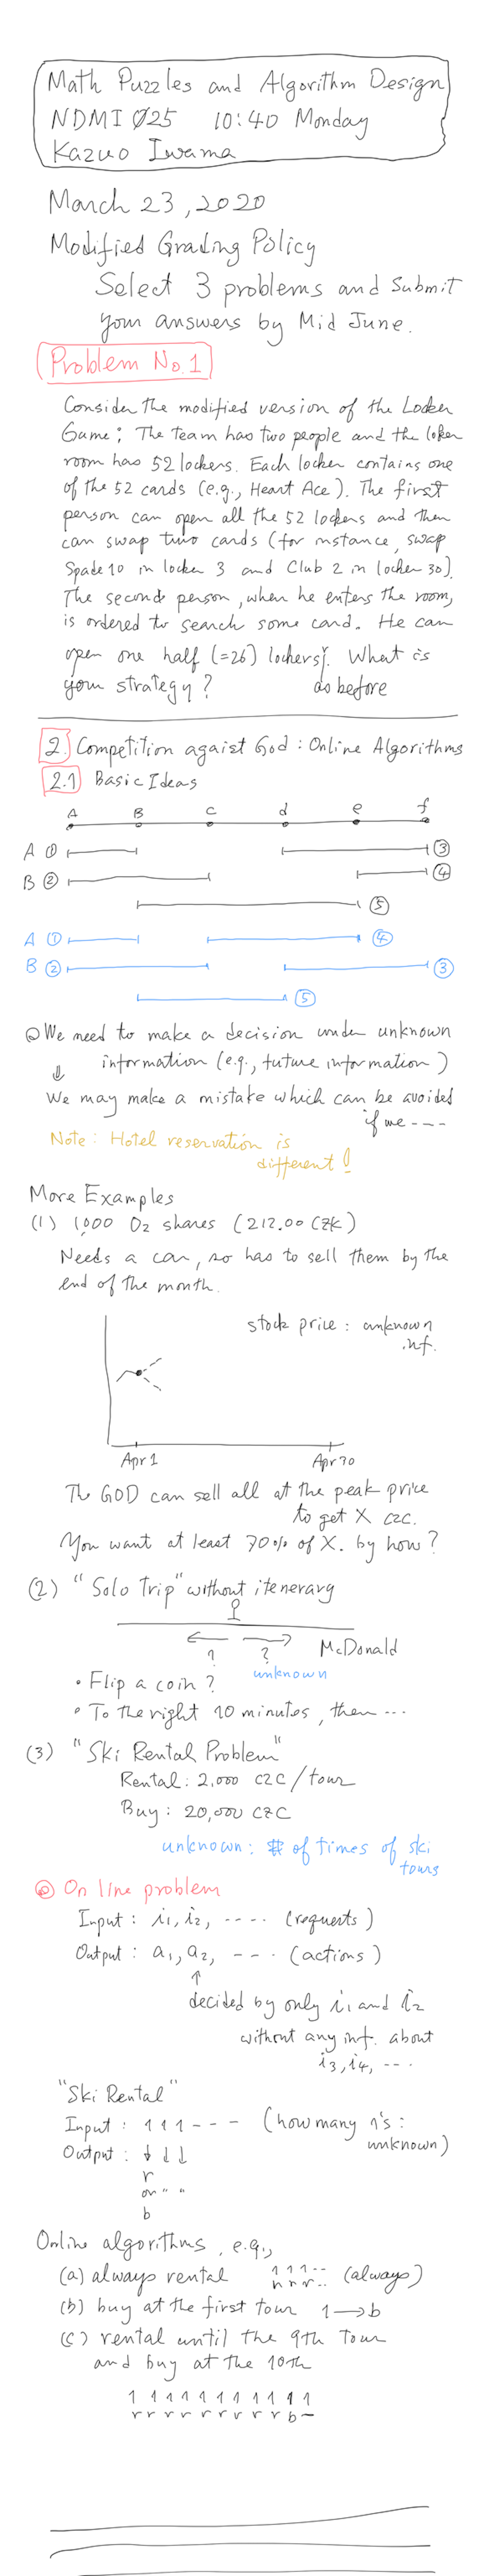 Math Puzzles and Algorithm Design
NDMI 025 10:40 Monday
Kazuo Iwama
March 23, 2020
Modified Grading Policy
Select 3 problems and Submit
your answers by Mid June.
Problem No.1
Consider the modified version of the Locker
Game; The team has two people and the loker
room has 52 lockers. Each locker contains one
of the 52 cards (e.g., Heart Ace). The first
person can open all the 52 lockers and then
can swap two cards (for instance, swap
Spade 10 in locker 3 and Club 2 in locker 30).
The second person, when he enters the room,
is ordered to search some card. He can
open one half (=26) lockers. What is
your strategy? as before
2. Competition agaist God: Online Algorithms
2.1 Basic Ideas
A B c d e f
A ① ③
B ② ④
⑤
A ① ④
B ② ③
⑤
We need to make a decision under unknown
information (e.g., future information)
We may make a mistake which can be avoided
if we ---
Note: Hotel reservation is
different!
More Examples
(1) 1,000 O2 shares (212.00 CZK)
Needs a car, so has to sell them by the
end of the month.
stock price: unknown
inf.
Apr 1 Apr 30
The GOD can sell all at the peak price
to get X CZC.
You want at least 70% of X. by how?
(2) "Solo Trip" without itenerary
? ? McDonald
unknown
• Flip a coin?
• To the right 10 minutes, then ...
(3) "Ski Rental Problem"
Rental: 2,000 CZC/tour
Buy: 20,000 CZC
unknown: # of times of ski
tours
On line problem
Input: i1, i2, ---- (requests)
Output: a1, a2, --- (actions)
decided by only i1 and i2
without any inf. about
i3, i4, ---
"Ski Rental"
Input: 1 1 1 --- (how many 1's:
unknown)
Output: ↓ ↓ ↓
r
or " "
b
Online algorithms, e.g.,
(a) always rental 1 1 1 .. (always)
r r r ..
(b) buy at the first tour 1→b
(c) rental until the 9th Tour
and buy at the 10th
1 1 1 1 1 1 1 1 1 1 1
r r r r r r r r r b –